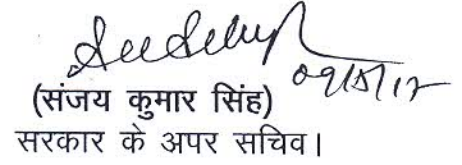 09/5/17
(संजय कुमार सिंह)
सरकार के अपर सचिव।